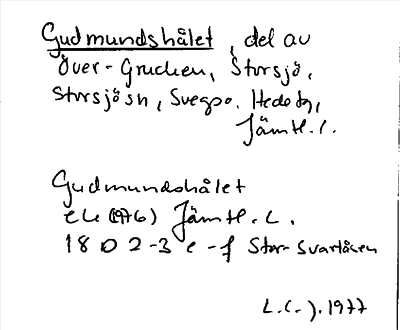 Gudmundshålet, del av
Över-Grucken, Storsjö,
Storsjö sn, Svegs po. Hede tg,
Jämtl. l.
Gudmundshålet
ek (1976) Jämtl. L.
18 D 2-3 e-f Stor-Svartåsen
1977